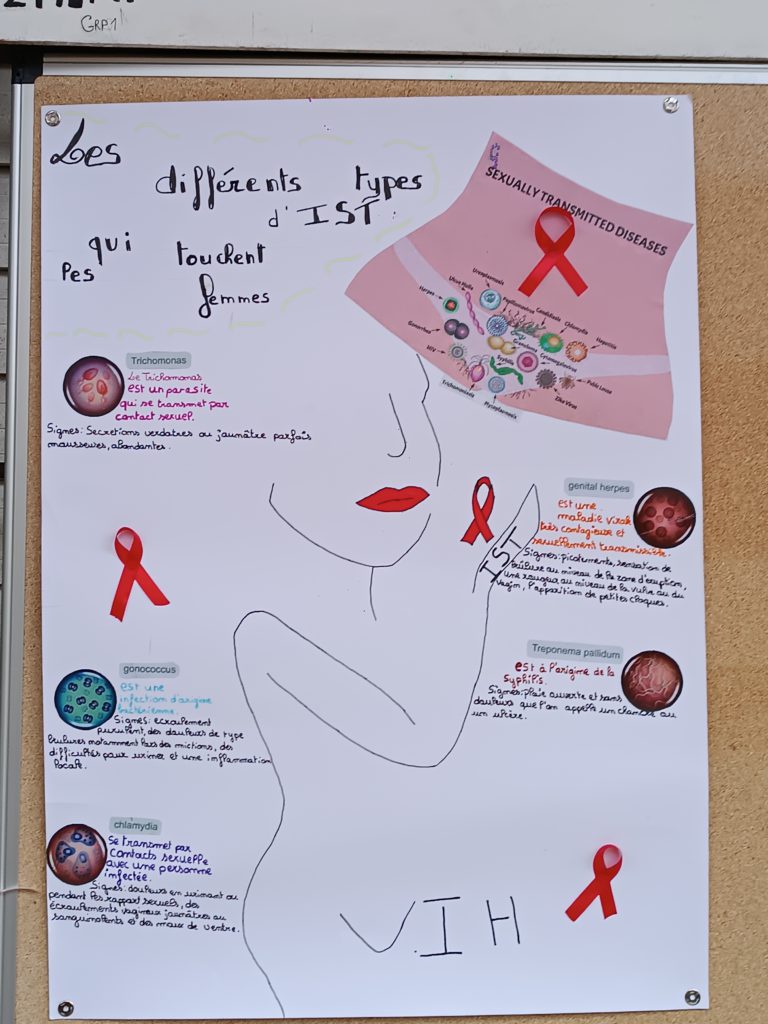 GRP.1
Les
différents types
d'IST.
qui touchent
les femmes
SEXUALLY TRANSMITTED DISEASES
Ureaplasmosis
Ulcus Molle
Papillomavirus
Herpes
Candidiasis
Chlamydia
Hepatitis
Gonorrhea
Granuloma
Cytomegalovirus
HIV
Syphilis
Pubic Louse
Zika Virus
Trichomoniasis
Mycoplasmosis
Trichomonas
Le Trichomonas
est un parasite
qui se transmet par
contact sexuel.
Signes: Secretions verdatres ou jaunâtre parfois
mousseuses, abondantes.
genital herpes
est une
maladie virale
très contagieuse et
sexuellement transmissible.
Signes: picotements, sensation de
brûlure au niveau de la zone d'éruption,
une rougeur au niveau de la vulve ou du
vagin, l'apparition de petites cloques.
IST
gonococcus
est une
infection d'origine
bactérienne.
Signes: écoulement
purulent, des douleurs de type
brulures notamment lors des mictions, des
difficultés pour uriner et une inflammation
locale.
Treponema pallidum
est à l'origine de la
syphilis.
Signes: plaie ouverte et sans
douleurs que l'on appelle un chancre ou
un ulcère.
chlamydia
Se transmet par
contacts sexuelle
avec une personne
infectée.
Signes: douleurs en urinant ou
pendant les rapport sexuels, des
écoulements vaginaux jaunâtres ou
sanguinolents et des maux de ventre.
V.I H